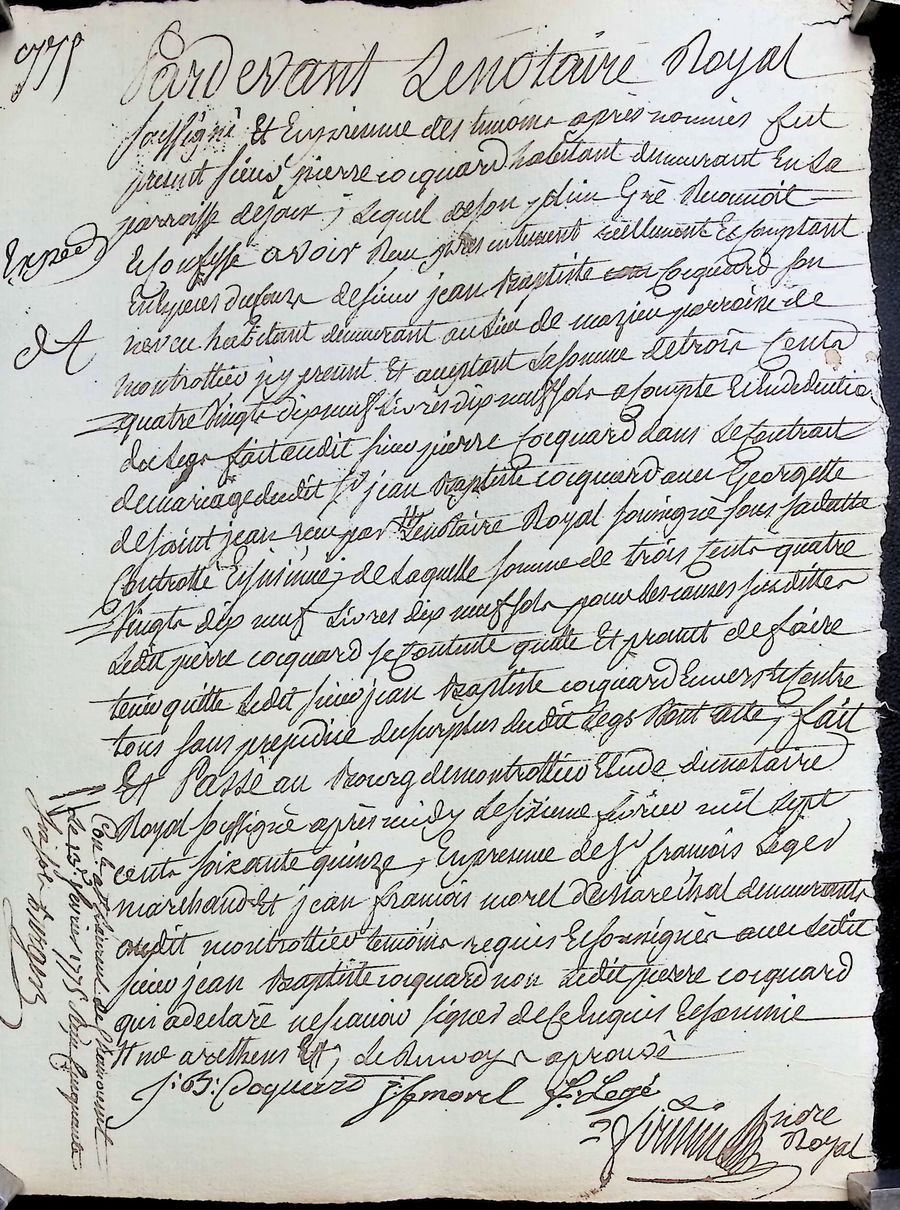 1775
Pardevant Lenotaire Royal
soussigné Et Enpresence des temoins après nommés fut
present sieur pierre cocquard habitant demeurant En la
parroisse dejoux, Lequel deson plein Gré Reconnoit
Expéed
Et confesse avoir Reçu presentement réellement Et comptant
En Especes du cours de sieur jean Baptiste Cocquard son
neveu habitant demeurant au lieu de mazieu parroisse de
montrottier icy present Et aceptant la somme de trois Cents
quatre Vingts dix neuf Livres dix neuf sols a Compte Et En deduction
du Legs fait audit sieur pierre Cocquard dans Le Contrait
de mariage dudit sr jean Baptiste cocquard avec Georgette
de saint jean reçu par Lenotaire Royal soussigné sous sa datte
Controllé Et insinué, de Laquelle somme de trois Cents quatre
Vingts dix neuf Livres dix neuf sols pour les causes susdittes
Ledit pierre cocquard se Contente quitte Et promet de faire
tenir quitte Ledit sieur jean Baptiste cocquard Envers Et Contre
tous sans prejudice du surplus dudit Legs Dont acte, fait
Et Passé au Bourg de montrottier Etude dunotaire
Royal soussigné après midy Le sizieme fevrier mil sept
cents soixante quinze, En presence de sr françois Léger
marchand Et jean françois morel demeurants
audit montrottier temoins requis Et soussignés avec Ledit
sieur jean Baptiste cocquard non Ledit pierre cocquard
qui a declaré ne sçavoir signer de ce Enquis Et sommé
Le Renvoy aprouvé
J: B: Coquard jf morel f: Legé
André
Royal
Con.lé a St Laurent de Chamousset
Le 13 fevrier 1775 Reçu